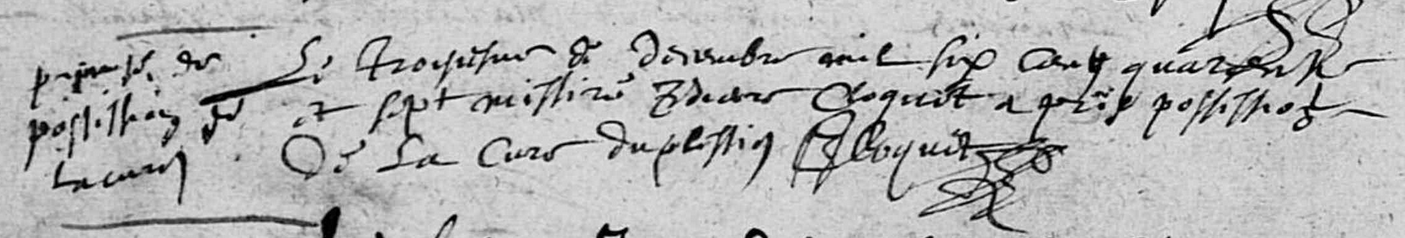 prinse de
possission de
la cure
Le troisiesme de decembre mil six cens quarente
et sept missire Cloquet a prins possission
De La Cure du plessis Cloquet